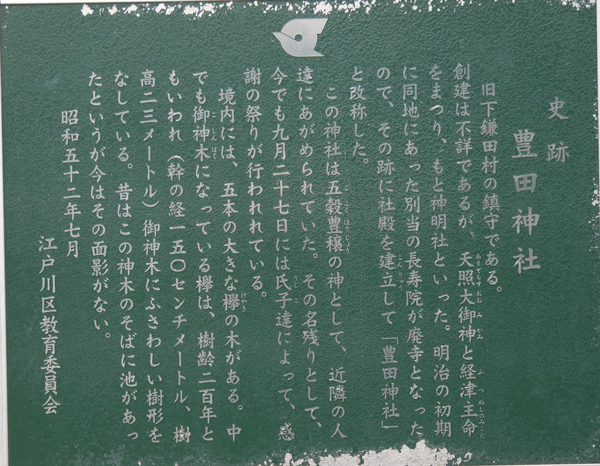 史跡
豊田神社
旧下鎌田村の鎮守である。
創建は不詳であるが、天照大御神と経津主命
をまつり、もと神明社といった。明治の初期
に同地にあった別当の長寿院が廃寺となった
ので、その跡に社殿を建立して「豊田神社」
と改称した。
この神社は五穀豊穣の神として、近隣の人
達にあがめられていた。その名残りとして、
今でも九月二十七日には氏子達によって、感
謝の祭りが行われれている。
境内には、五本の大きな欅の木がある。中
でも御神木になっている欅は、樹齢二百年と
もいわれ（幹の経一五〇センチメートル、樹
高二三メートル）御神木にふさわしい樹形を
なしている。昔はこの神木のそばに池があっ
たというが今はその面影がない。
昭和五十二年七月
江戸川区教育委員会